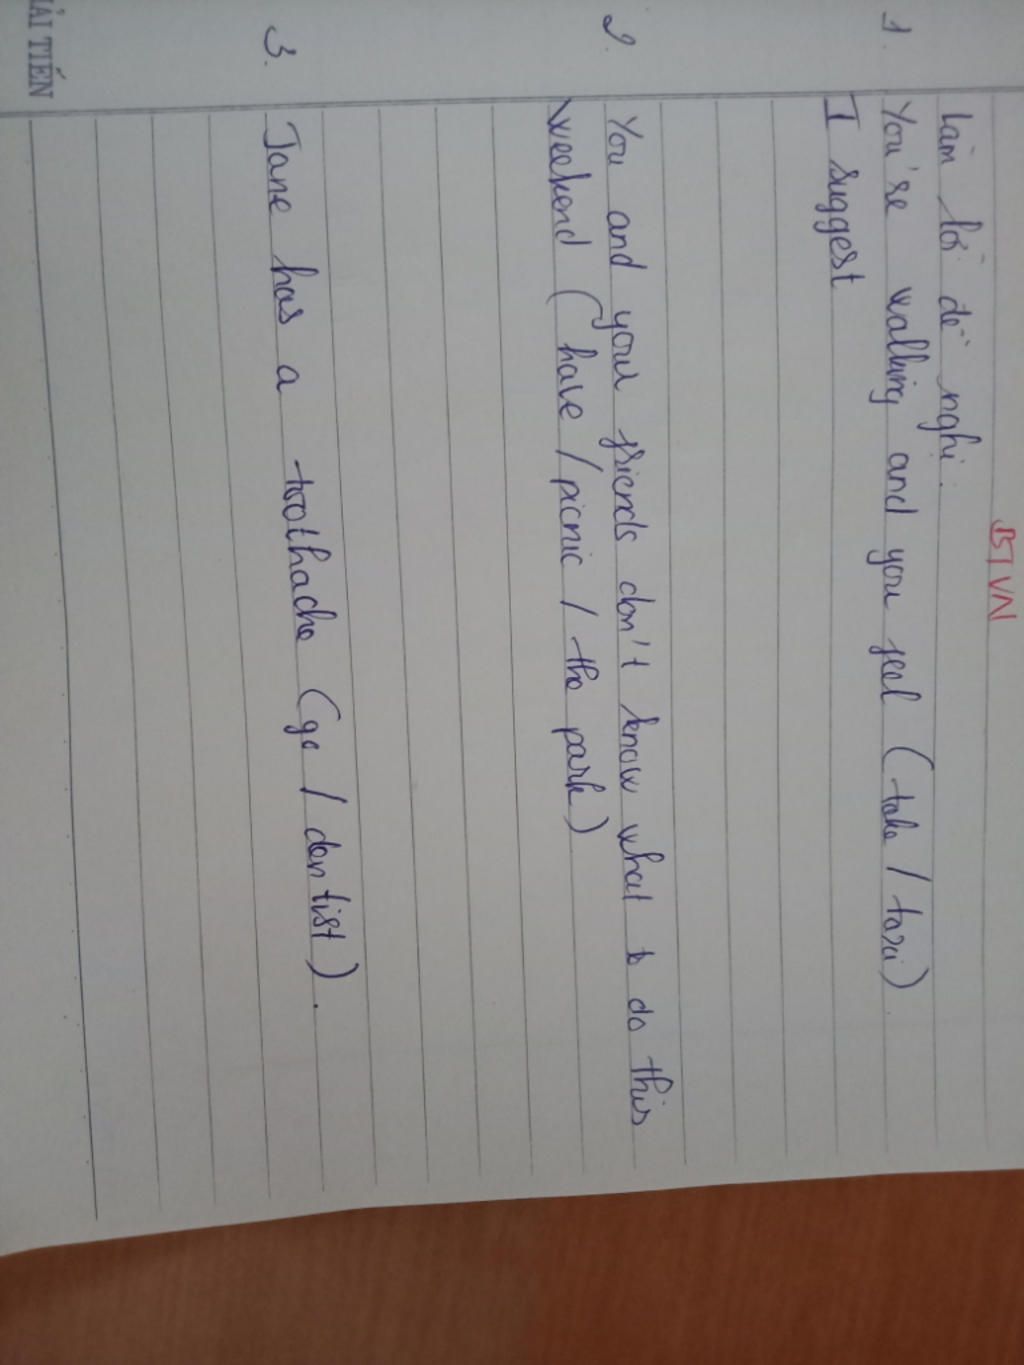 BTVN
Làm lời đề nghị.
1. You're walking and you feel (take / taxi)
I suggest
2. You and your friends don't know what to do this
weekend (have / picnic / the park)
3. Jane has a toothache (go / dentist).
ẢI TIẾN